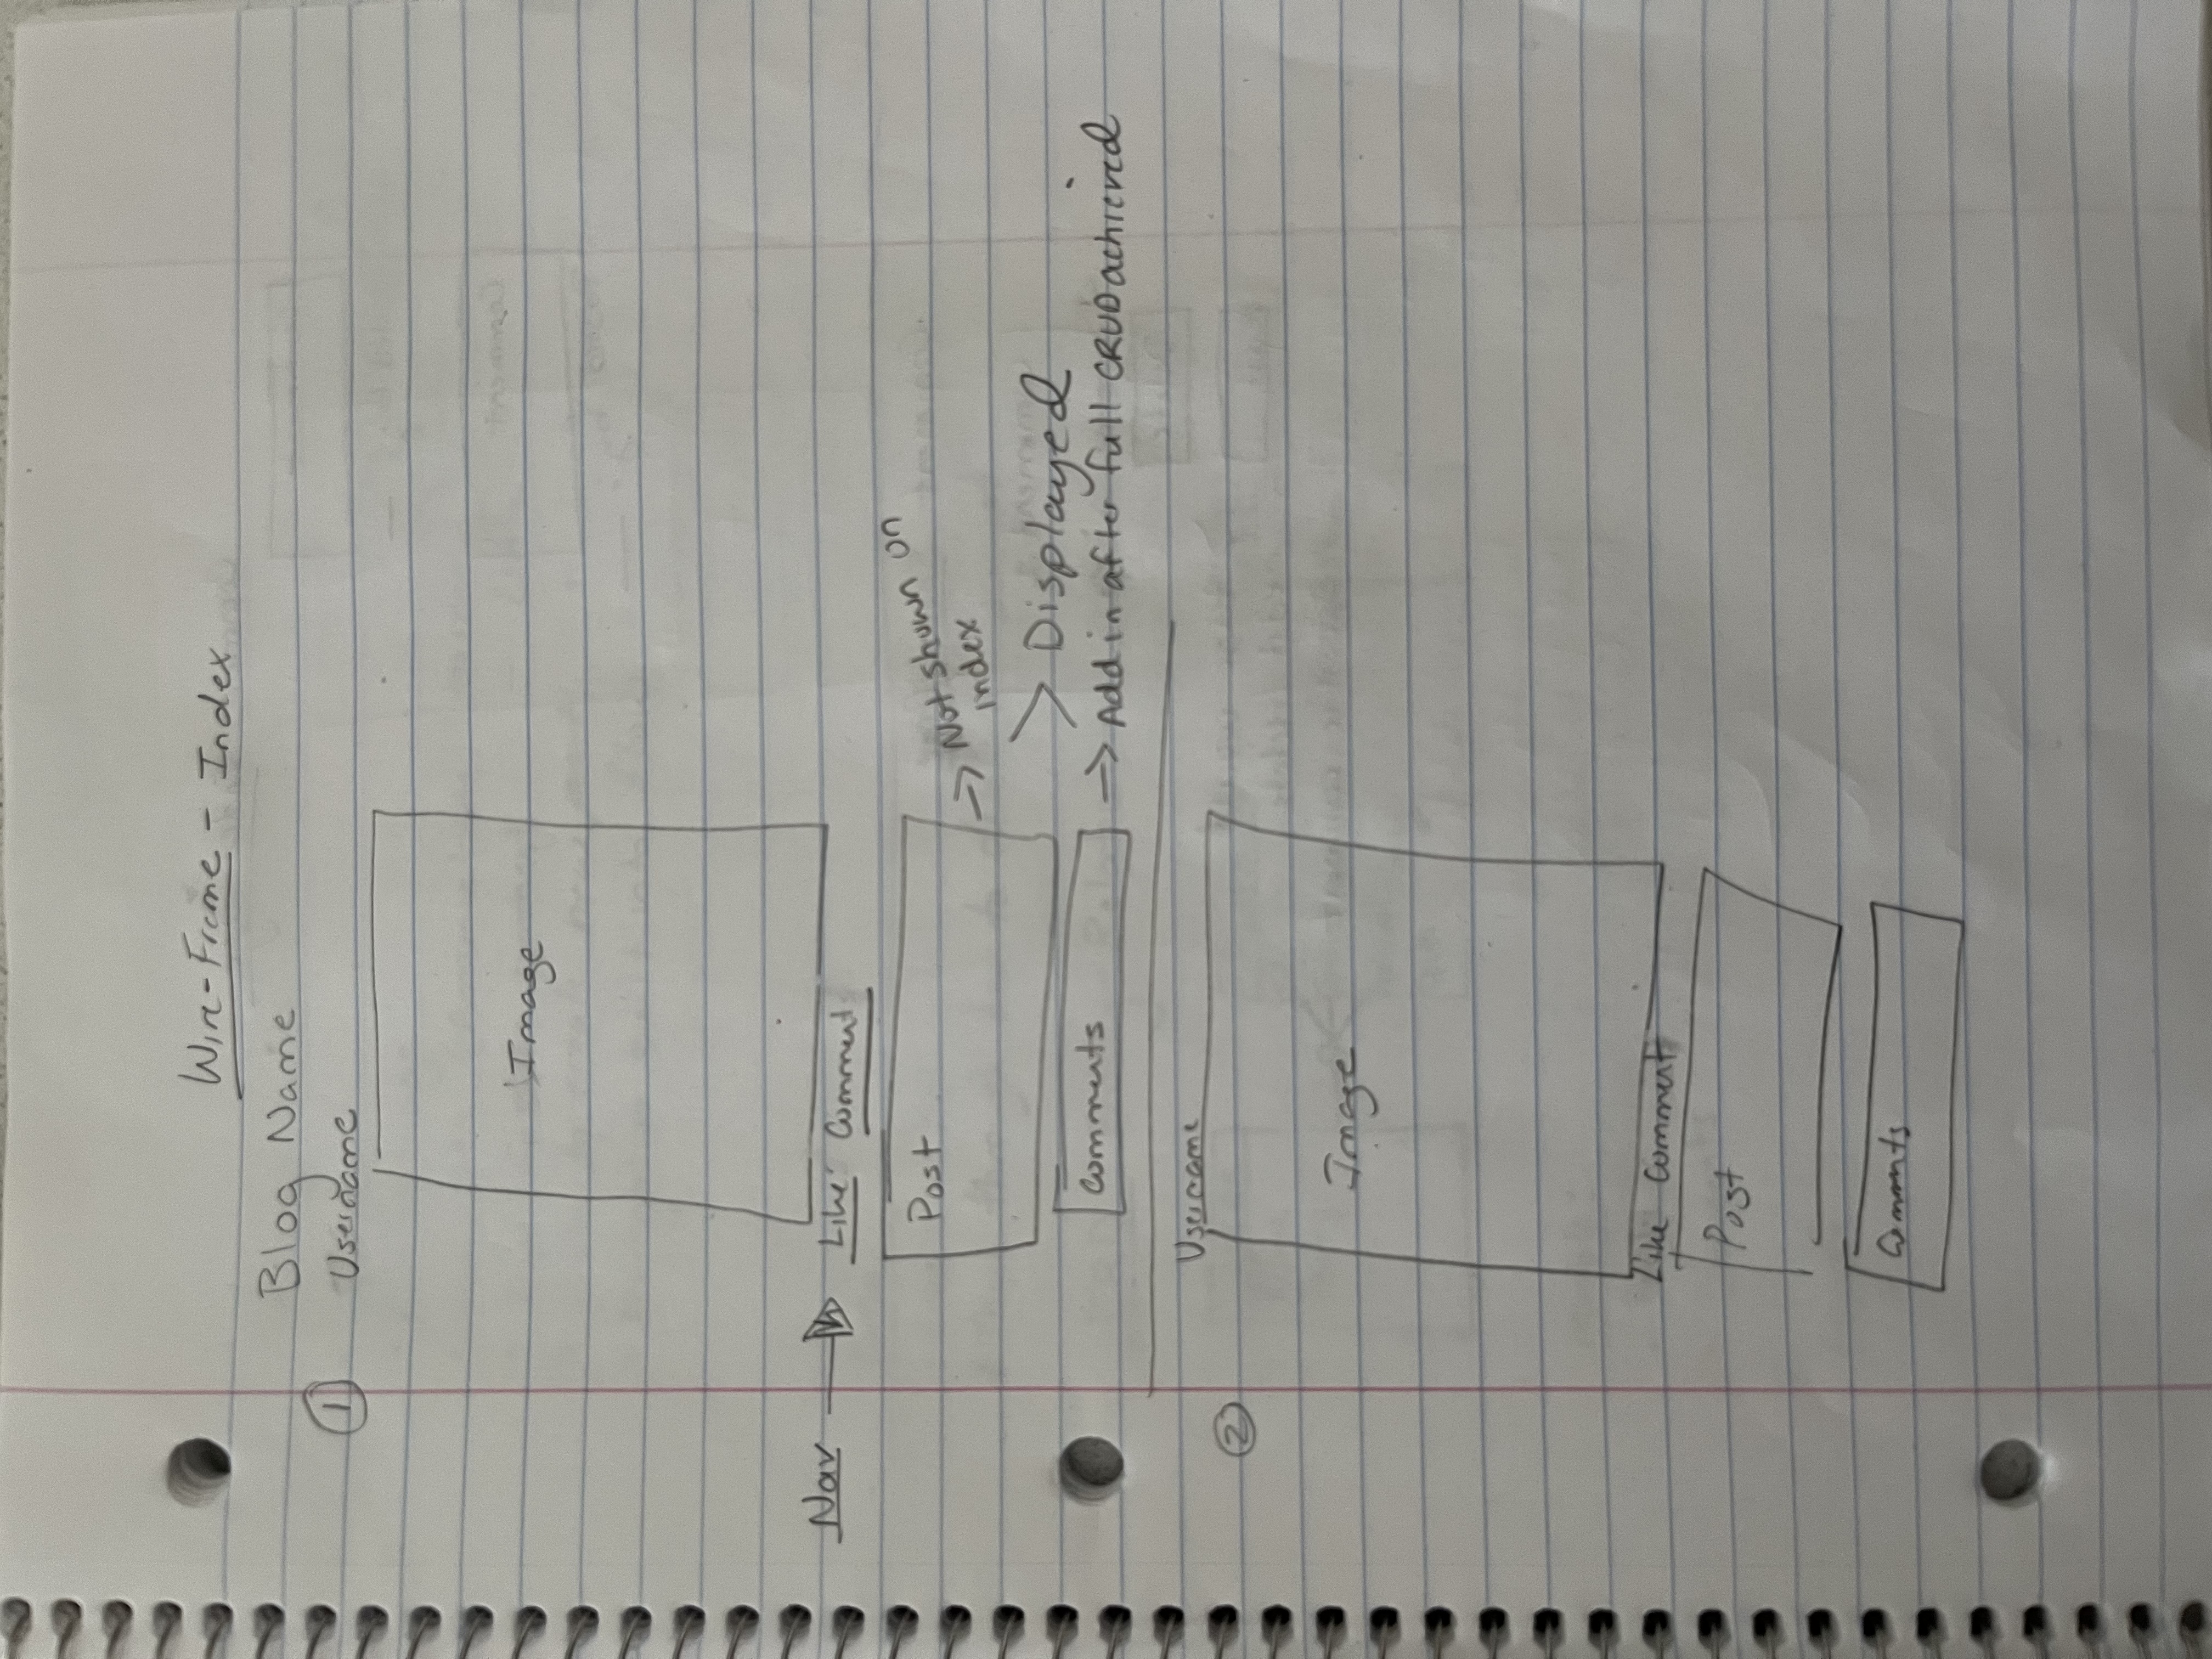 Wire-Frame - Index
Blog Name
1 Username
Image
Nav Like Comment
Post
Not shown on
index
> Displayed
Comments
Add in after full CRUD achieved
Username
2
Image
Like Comment
Post
Comments